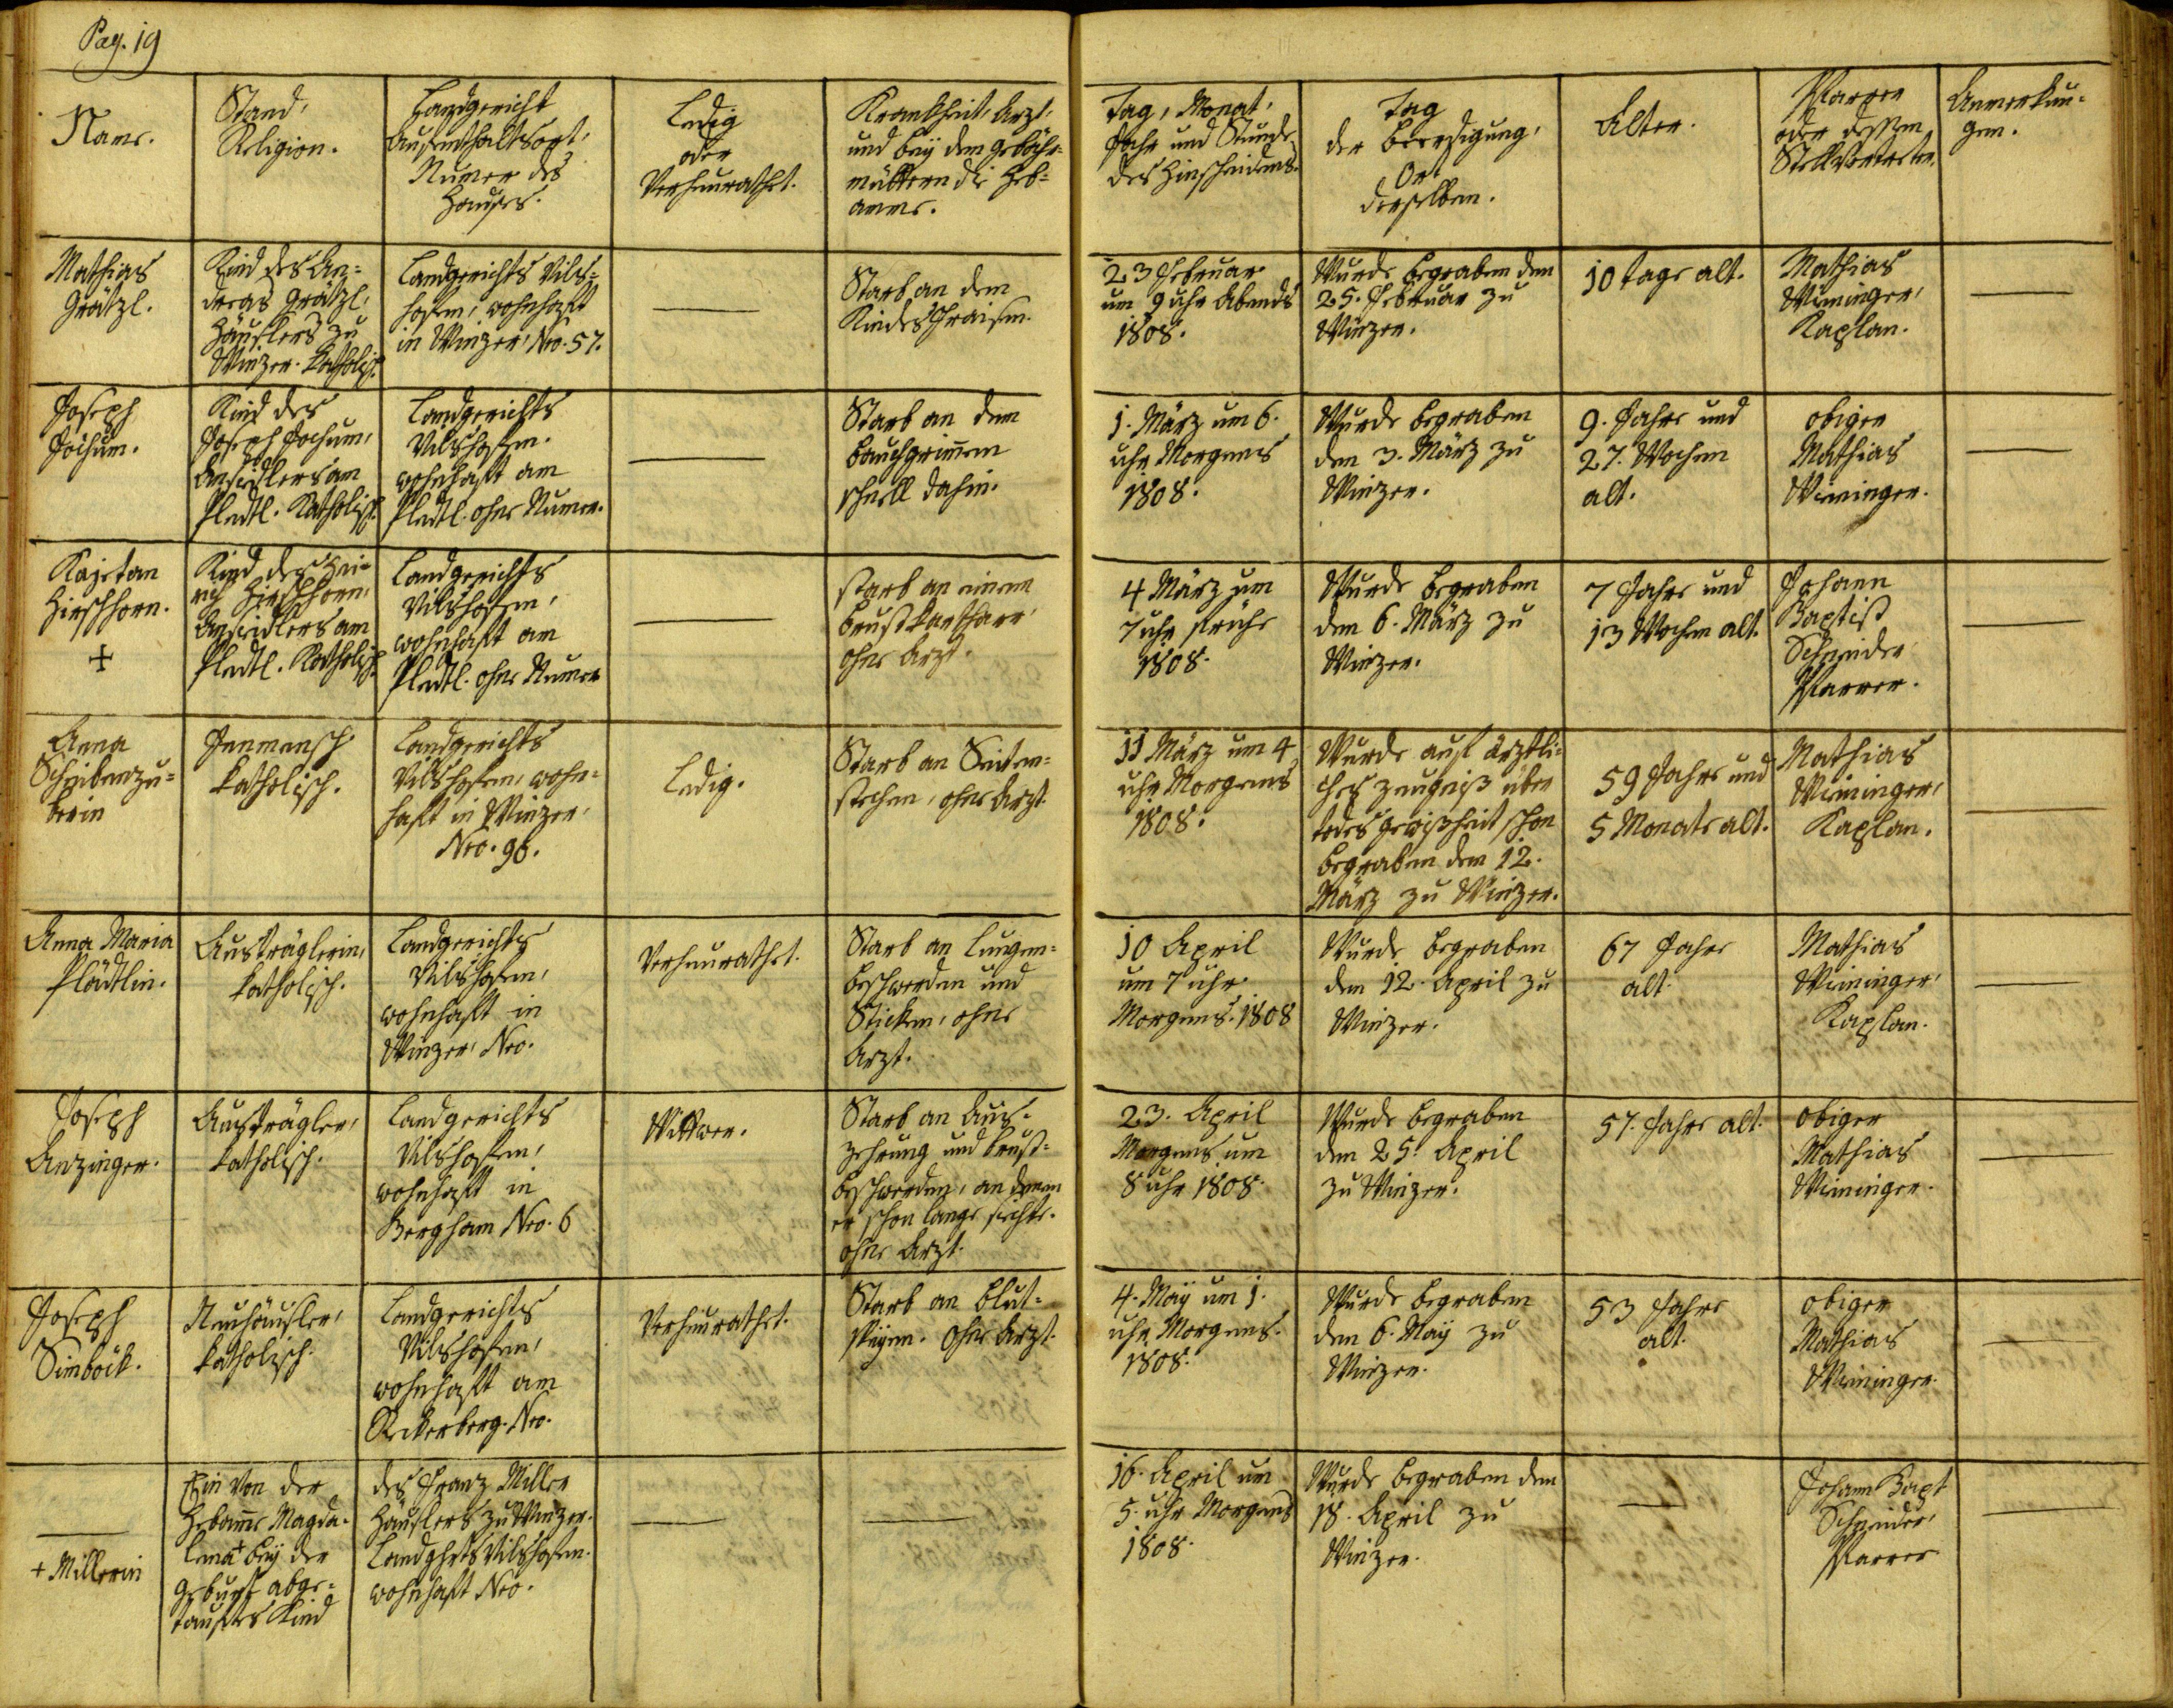 Pag. 19
Name.
Stand,
Religion.
Landgericht
Aufenthaltsort,
Numer des
Hauses.
Ledig
oder
Verheurathet.
Krankheit, Arzt,
und bey den Gebähr=
müttern die Heb=
amme.
Tag, Monat,
Jahr und Stunde
des Hinscheidens.
Tag
der Beerdigung,
Ort
derselben.
Alter.
Pfarrer
oder dessen
Stellvertretter.
Anmerkun=
gen.
Mathias
Grätzl.
Kind des An=
dreas Grätzl,
Häuslers zu
Winzer. Katholisch.
Landgerichts Vils=
hofen, wohnhaft
in Winzer, Nro. 57.
Starb an den
Kindsfraisen.
23 Februar
um 9 uhr Abends
1808.
Wurde begraben den
25. Februar zu
Winzer.
10 Tage alt.
Mathias
Wieninger,
Kaplan.
Joseph
Jochum.
Kind des
Joseph Jochum,
Ansiedlers am
Pledtl. Katholisch.
Landgerichts
Vilshofen.
wohnhaft am
Pledtl. ohne Numer.
Starb an dem
Bauchgrimmen
schnell dahin.
1. März um 6.
uhr Morgens
1808.
Wurde begraben
den 3. März zu
Winzer.
9. Jahre und
27. Wochen
alt.
obiger
Mathias
Wieninger.
Kajetan
Hirschhorn.
+
Kind des Hei=
rich Hirschhorn,
Ansiedlers am
Pledtl. Katholisch.
Landgerichts
Vilshofen,
wohnhaft am
Pledtl. ohne Numer
starb an einem
Brustkatharr,
ohne Arzt.
4 März um
7 uhr frühe
1808.
Wurde begraben
den 6. März zu
Winzer.
7 Jahre und
13 Wochen alt.
Johann
Baptist
Schneider
Pfarrer.
Anna
Scheibenzu=
berin
Innmensch
katholisch.
Landgerichts
Vilshofen, wohn=
haft in Winzer,
Nro. 90.
Ledig.
Starb an Seiten=
stechen, ohne Arzt.
11 März um 4
uhr Morgens
1808.
Wurde auf ärztli=
ches Zeugniß über
Todesgewißheit schon
begraben den 12.
März zu Winzer.
59 Jahre und
5 Monate alt.
Mathias
Wieninger,
Kaplan.
Anna Maria
Plädtlin.
Austräglerin,
katholisch.
Landgerichts
Vilshofen,
wohnhaft in
Winzer, Nro.
Verheurathet.
Starb an Lungen=
beschwerden und
Sticken, ohne
Arzt.
10 April
um 7 uhr
Morgens. 1808
Wurde begraben
den 12. April zu
Winzer.
67 Jahre
alt.
Mathias
Wieninger,
Kaplan.
Joseph
Anzinger.
Austrägler,
katholisch.
Landgerichts
Vilshofen,
wohnhaft in
Bergham Nro. 6
Wittwer.
Starb an Aus=
zehrung und Brust=
beschwerden, an denen
er schon lange siechte.
ohne Arzt.
23. April
Morgens um
8 uhr 1808.
Wurde begraben
den 25. April
zu Winzer.
57. Jahre alt.
obiger
Mathias
Wieninger.
Joseph
Simböck.
Neuhäusler,
katholisch.
Landgerichts
Vilshofen,
wohnhaft am
Reckerberg. Nro.
Verheurathet.
Starb an Blut=
speyen. Ohne Arzt.
4. May um 1.
uhr Morgens.
1808.
Wurde begraben
den 6. May zu
Winzer.
53 Jahre
alt.
obiger
Mathias
Wieninger.
+ Millerin
Ein von der
Hebamme Magda=
lena + bey der
Geburt abge=
tauftes Kind
des Franz Miller
Häuslers zu Winzer.
Landghrts Vilshofen.
wohnhaft Nro.
16. April um
5. uhr Morgens
1808.
Wurde begraben den
18. April zu
Winzer.
Johann Bapt
Schneider,
Pfarrer